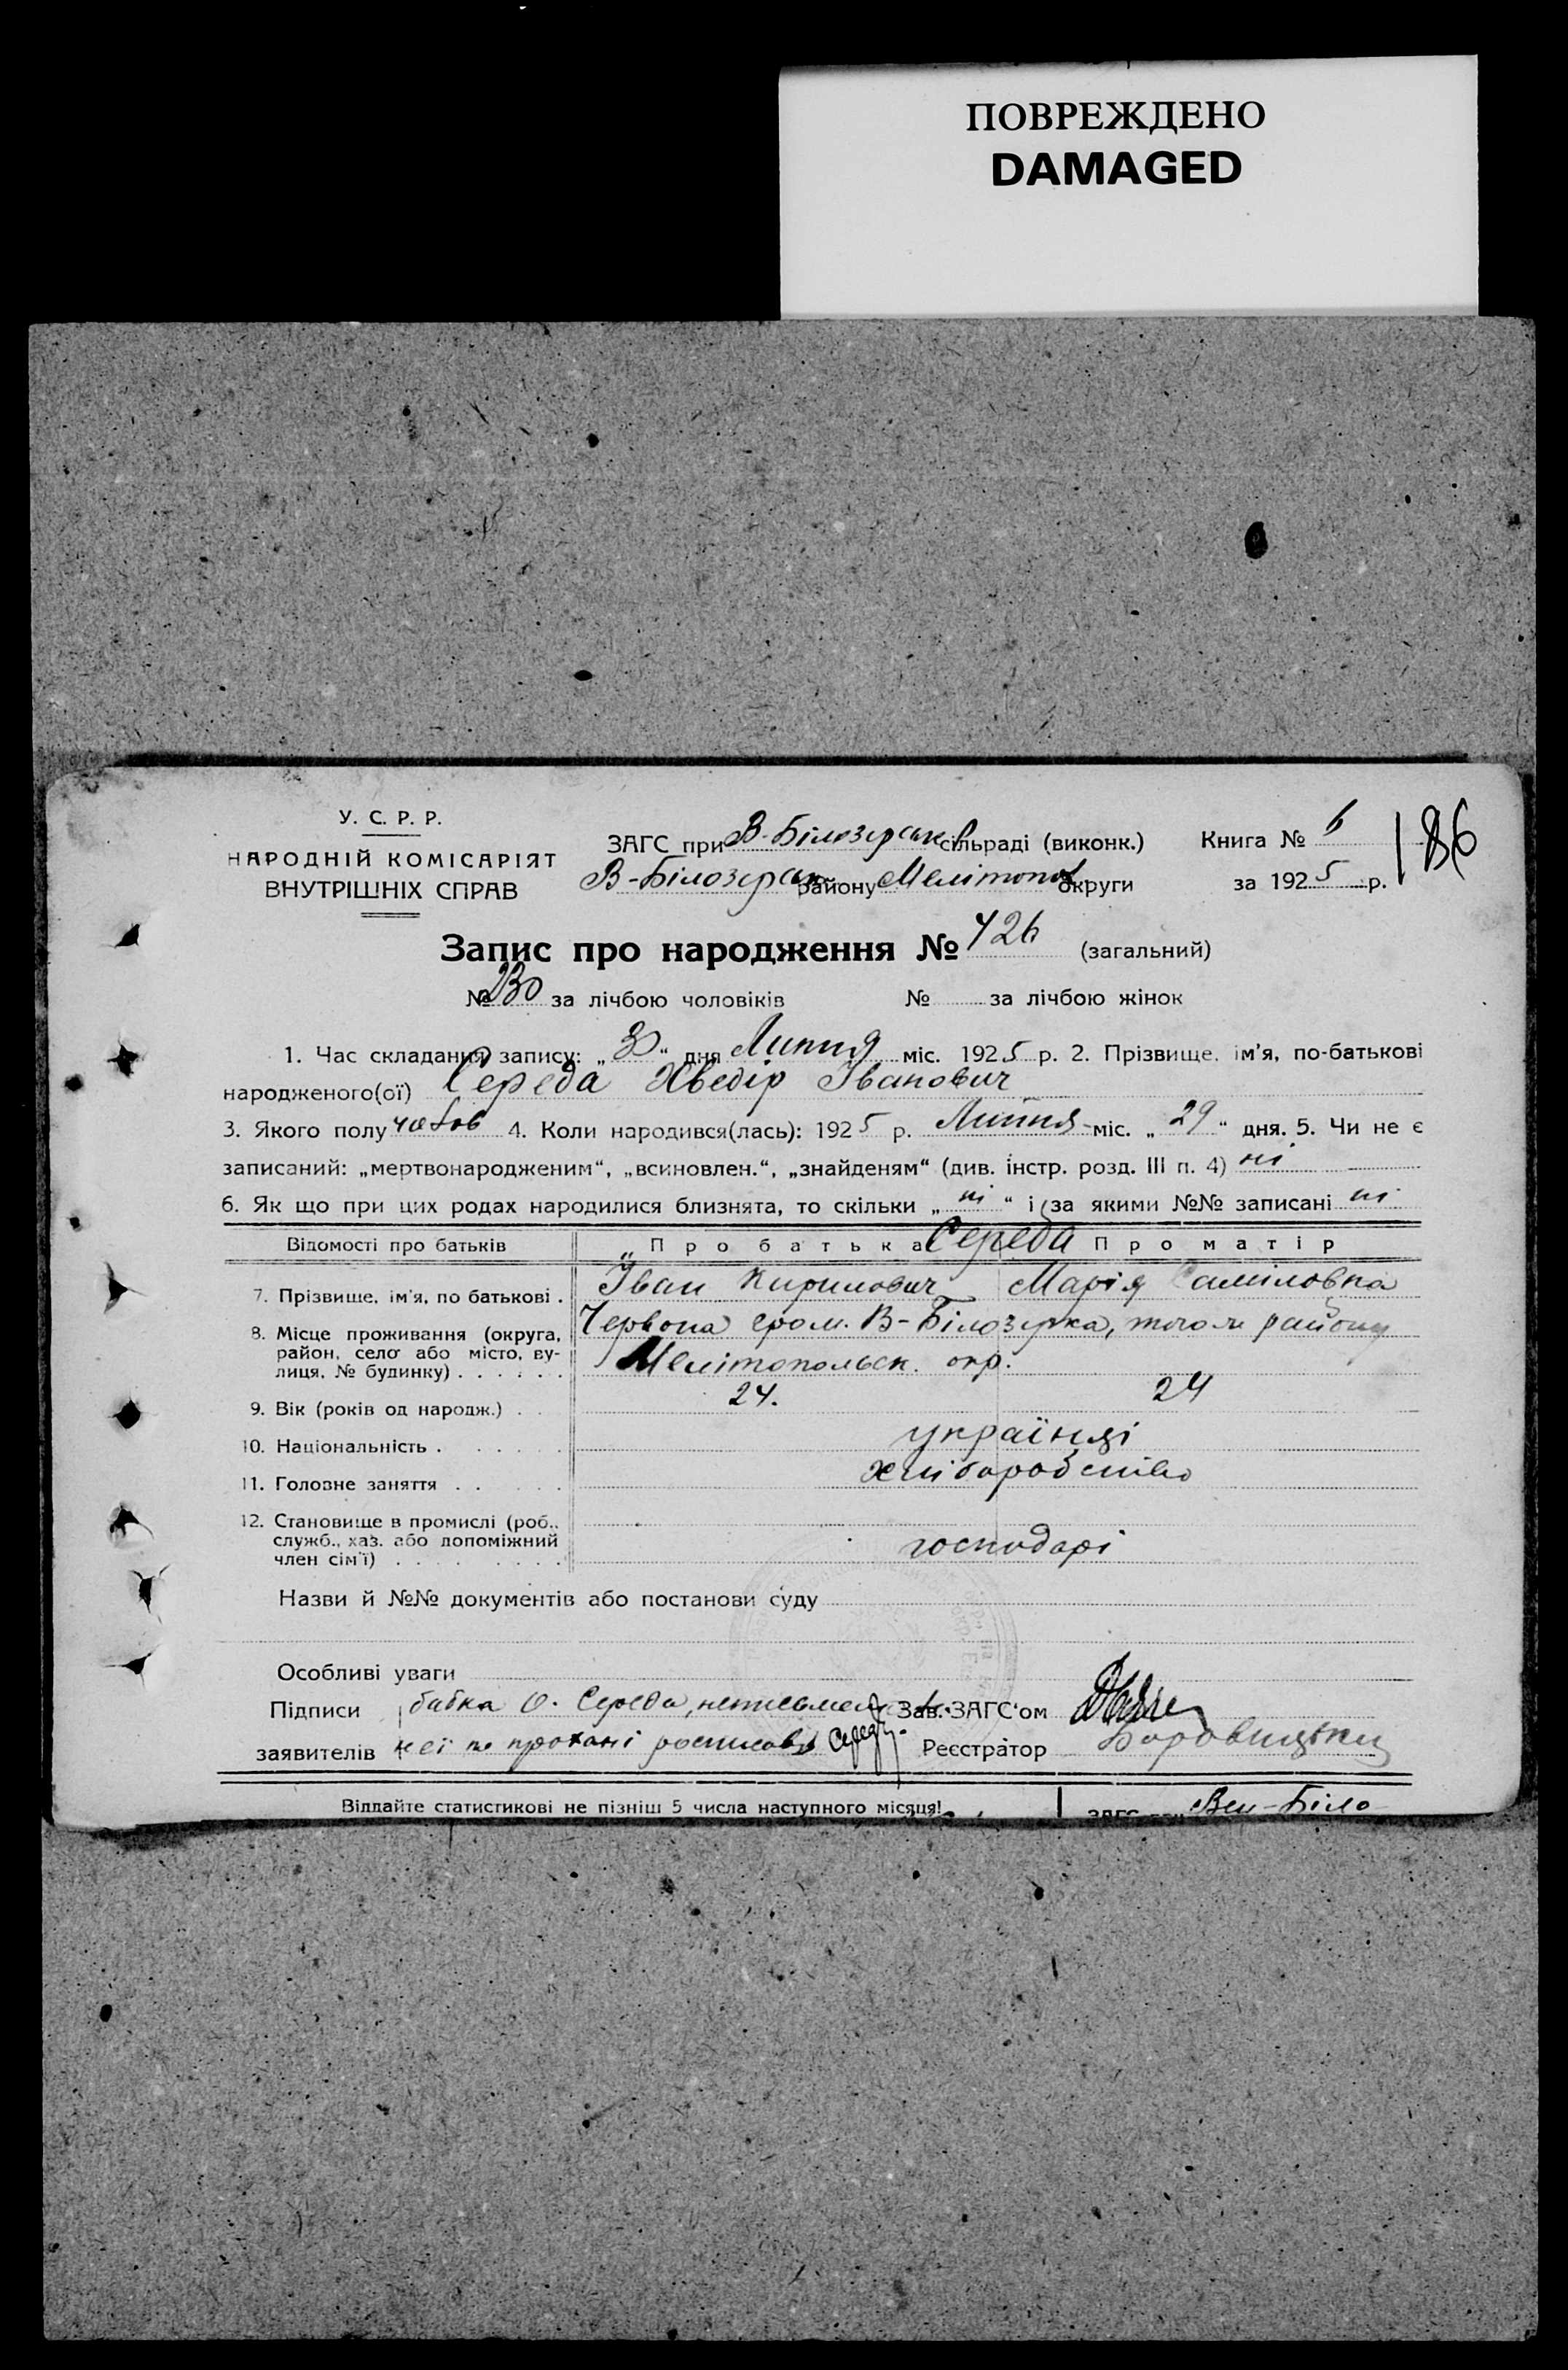 ПОВРЕЖДЕНО
DAMAGED
У. С. Р. Р.
НАРОДНІЙ КОМІСАРІЯТ
ВНУТРІШНІХ СПРАВ
ЗАГС при В-Білозерськ сільраді (виконк.)
В-Білозерськ району Мелітопол округи
Книга № 6
за 1925 р.
186
Запис про народження № 426 (загальний)
№ 230 за лічбою чоловіків № за лічбою жінок
1. Час складання запису: „30“ дня Липня міс. 1925 р. 2. Прізвище, ім'я, по-батькові
народженого(ої) Середа Хведір Іванович
3. Якого полу 4. Коли народився(лась): 1925 р. Липня міс. „29“ дня. 5. Чи не є
записаний: „мертвонародженим“, „всиновлен.“, „знайденям“ (див. інстр. розд. III п. 4) ні
6. Як що при цих родах народилися близнята, то скільки „ні“ і за якими №№ записані ні
Відомості про батьків „Про батька Середа Про матір
7. Прізвище, ім'я, по батькові . Іван Кирилович Марія Самиловна
8. Місце проживання (округа, район, село або місто, вулиця, № будинку) . . . . . . Червона гром. В-Білозерка, того ж району
Мелітопольск. окр.
9. Вік (років од народж.) . . 24. 24
10. Національність . . . . . . українці
11. Головне заняття . . . . . хліборобство
12. Становище в промислі (роб.,
служб., хаз. або допоміжний
член сім'ї) . . . . . . . . господарі
Назви й №№ документів або постанови суду
Особливі уваги
Підписи бабка О. Середа, Зав. ЗАГС'ом
заявителів неї по прохані росписавсь Середа. Реєстратор Боровицький
Віддайте статистикові не пізніш 5 числа наступного місяця!
ЗАГС при Вел-Біло